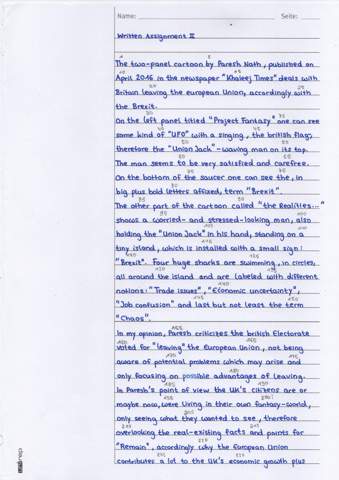 Name: Seite:
Written Assignment II
The two-panel cartoon by Paresh Nath, published on
April 2016 in the newspaper "Khaleej Times" deals with
Britain leaving the european Union, accordingly with
the Brexit.
On the left panel titled "Project Fantasy" one can see
some kind of "UFO" with a singing, the british flag;
therefore the "Union Jack"-waving man on its top.
The man seems to be very satisfied and carefree.
On the bottom of the saucer one can see the, in
big plus bold letters affixed, term "Brexit".
The other part of the cartoon called "the Realities..."
shows a worried- and stressed-looking man, also
holding the "Union Jack" in his hand, standing on a
tiny island, which is installed with a small sign:
"Brexit". Four huge sharks are swimming, in circles,
all around the island and are labeled with different
notions: "Trade issues", "Economic uncertainty",
"Job confusion" and last but not least the term
"Chaos".
In my opinion, Paresh criticizes the british Electorate
voted for "leaving" the European Union, not being
aware of potential problems which may arise and
only focusing on possible advantages of leaving.
In Paresh's point of view the UK's citizens are or
maybe now, were living in their own fantasy-world,
only seeing what they wanted to see, therefore
overlooking the real-existing facts and points for
"Remain", accordingly why the european Union
contributes a lot to the UK's economic growth plus